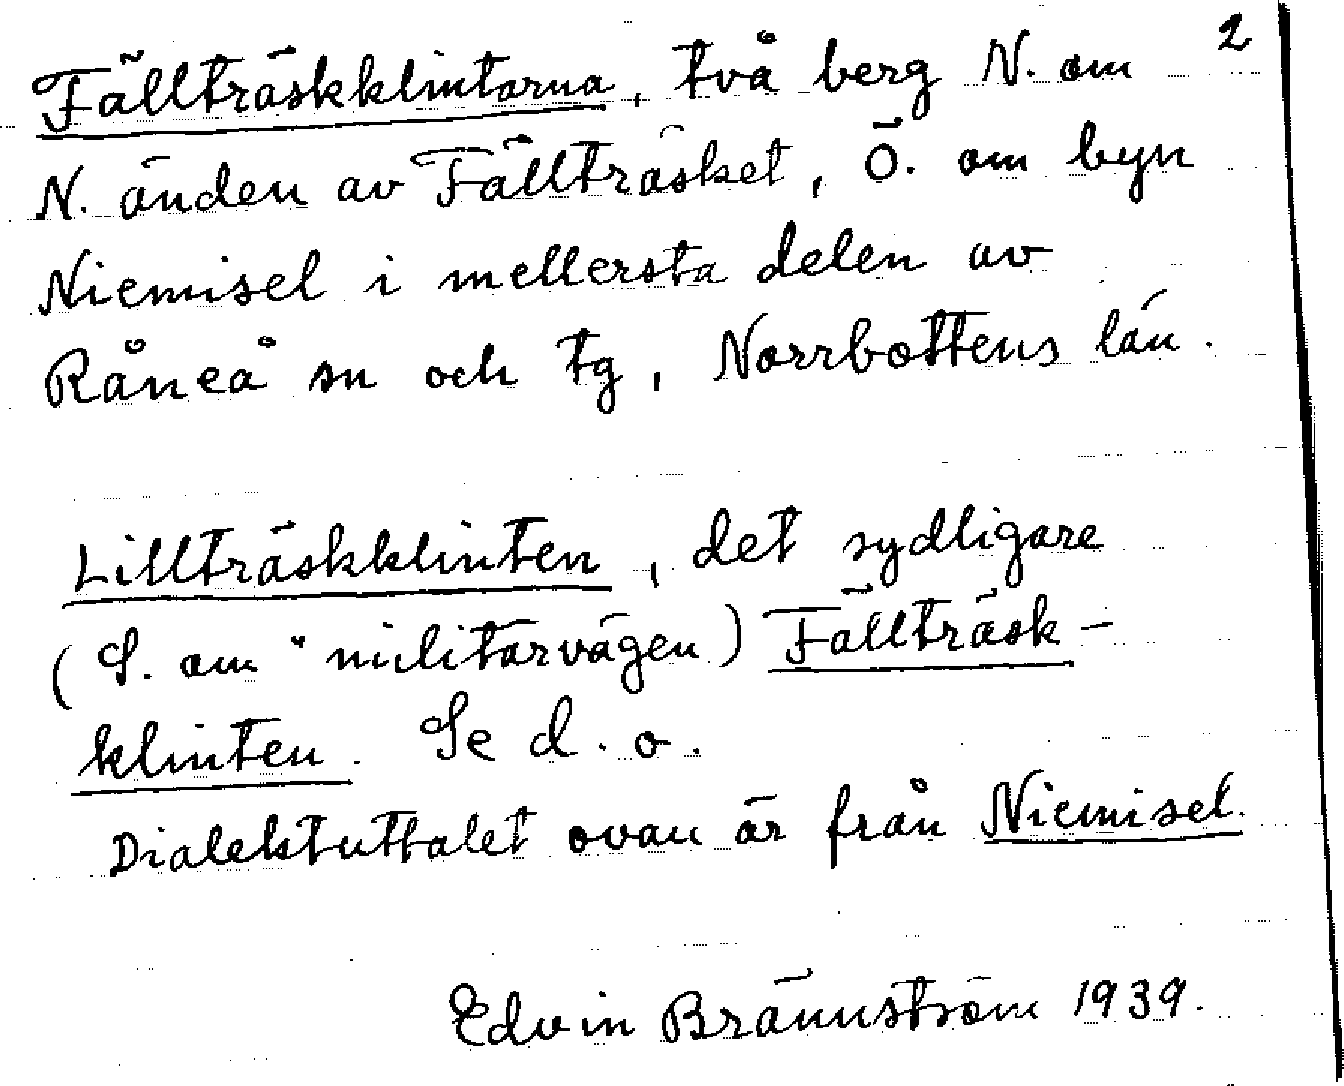 2
Fällträskklintarna, två berg N. om
N. änden av Fällträsket, Ö. om byn
Niemisel i mellersta delen av
Råneå sn och tg, Norrbottens län.
Lillträskklinten, det sydligare
(S. om "militärvägen) Fällträsk-
klinten. Se d. o.
Dialektuttalet ovan är från Niemisel.
Edvin Brännström 1939.